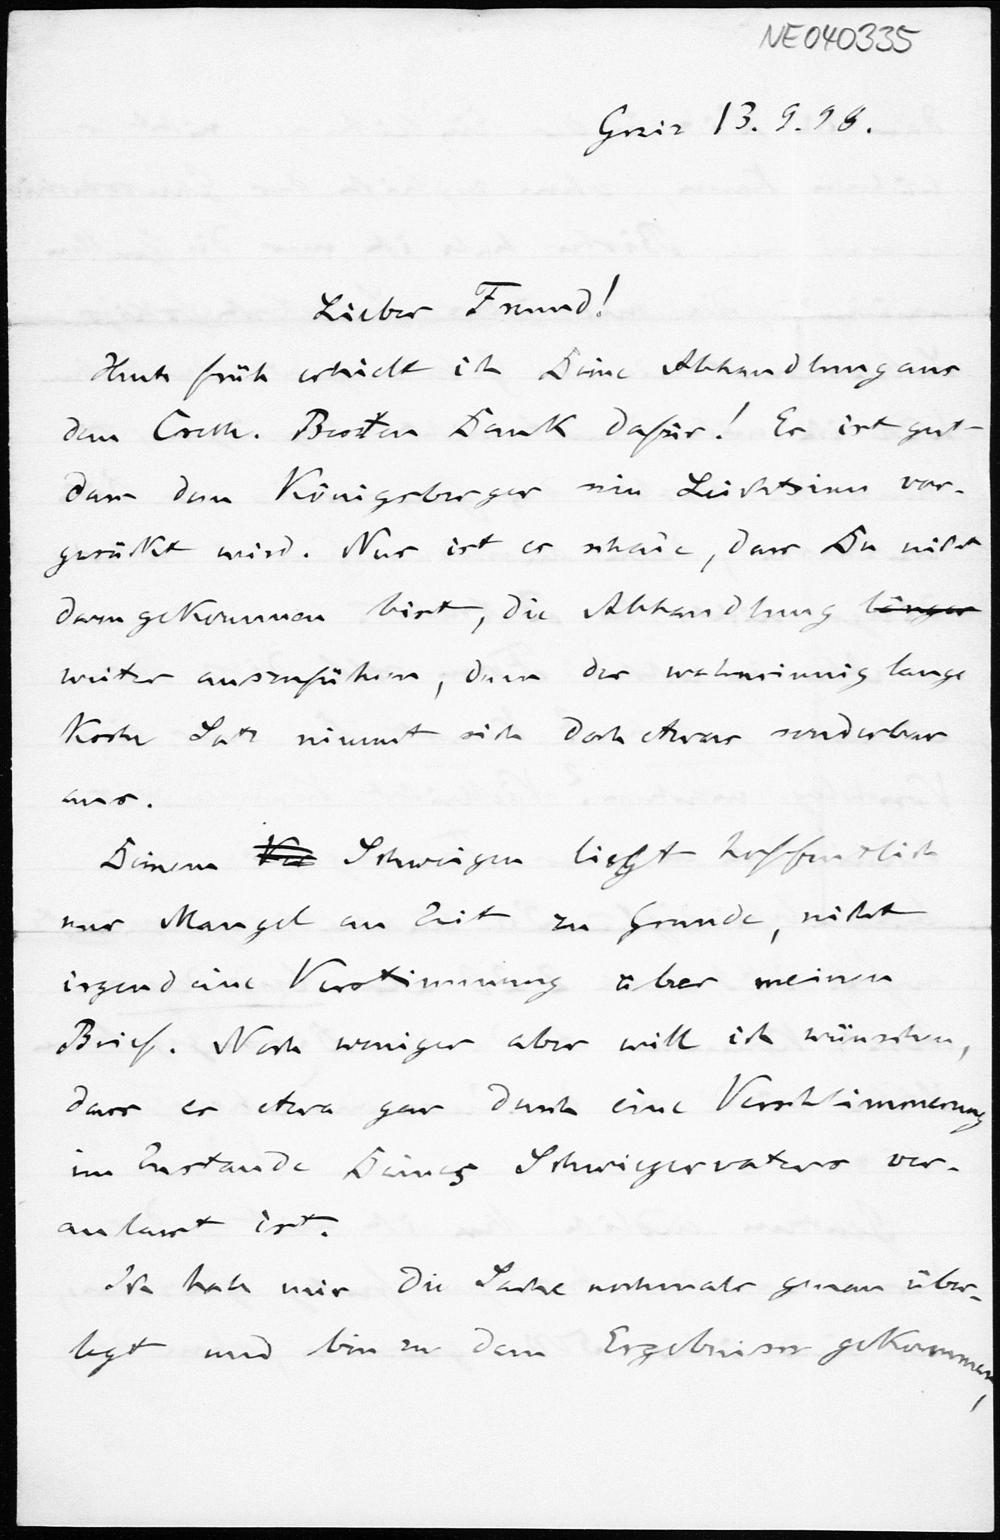 NE040335
Greiz 13.9.98.
Lieber Freund!
Heute früh erhielt ich Deine Abhandlung aus
dem Crelle. Besten Dank dafür! Es ist gut
dass dem Königsberger sein Leichtsinn vor-
gerückt wird. Nur ist es schade, dass Du nicht
dazu gekommen bist, die Abhandlung länger
weiter auszuführen, denn der wahnsinnig lange
Satz nimmt sich doch etwas sonderbar
aus.
Deinem Schweigen liegt hoffentlich
nur Mangel an Zeit zu Grunde, nicht
irgend eine Verstimmung über meinen
Brief. Noch weniger aber will ich wünschen,
dass es etwa gar durch eine Verschlimmerung
im Zustande Deines Schwiegervaters ver-
anlasst ist.
Ich habe mir die Sache nochmals genau über-
legt und bin zu dem Ergebnisse gekommen,